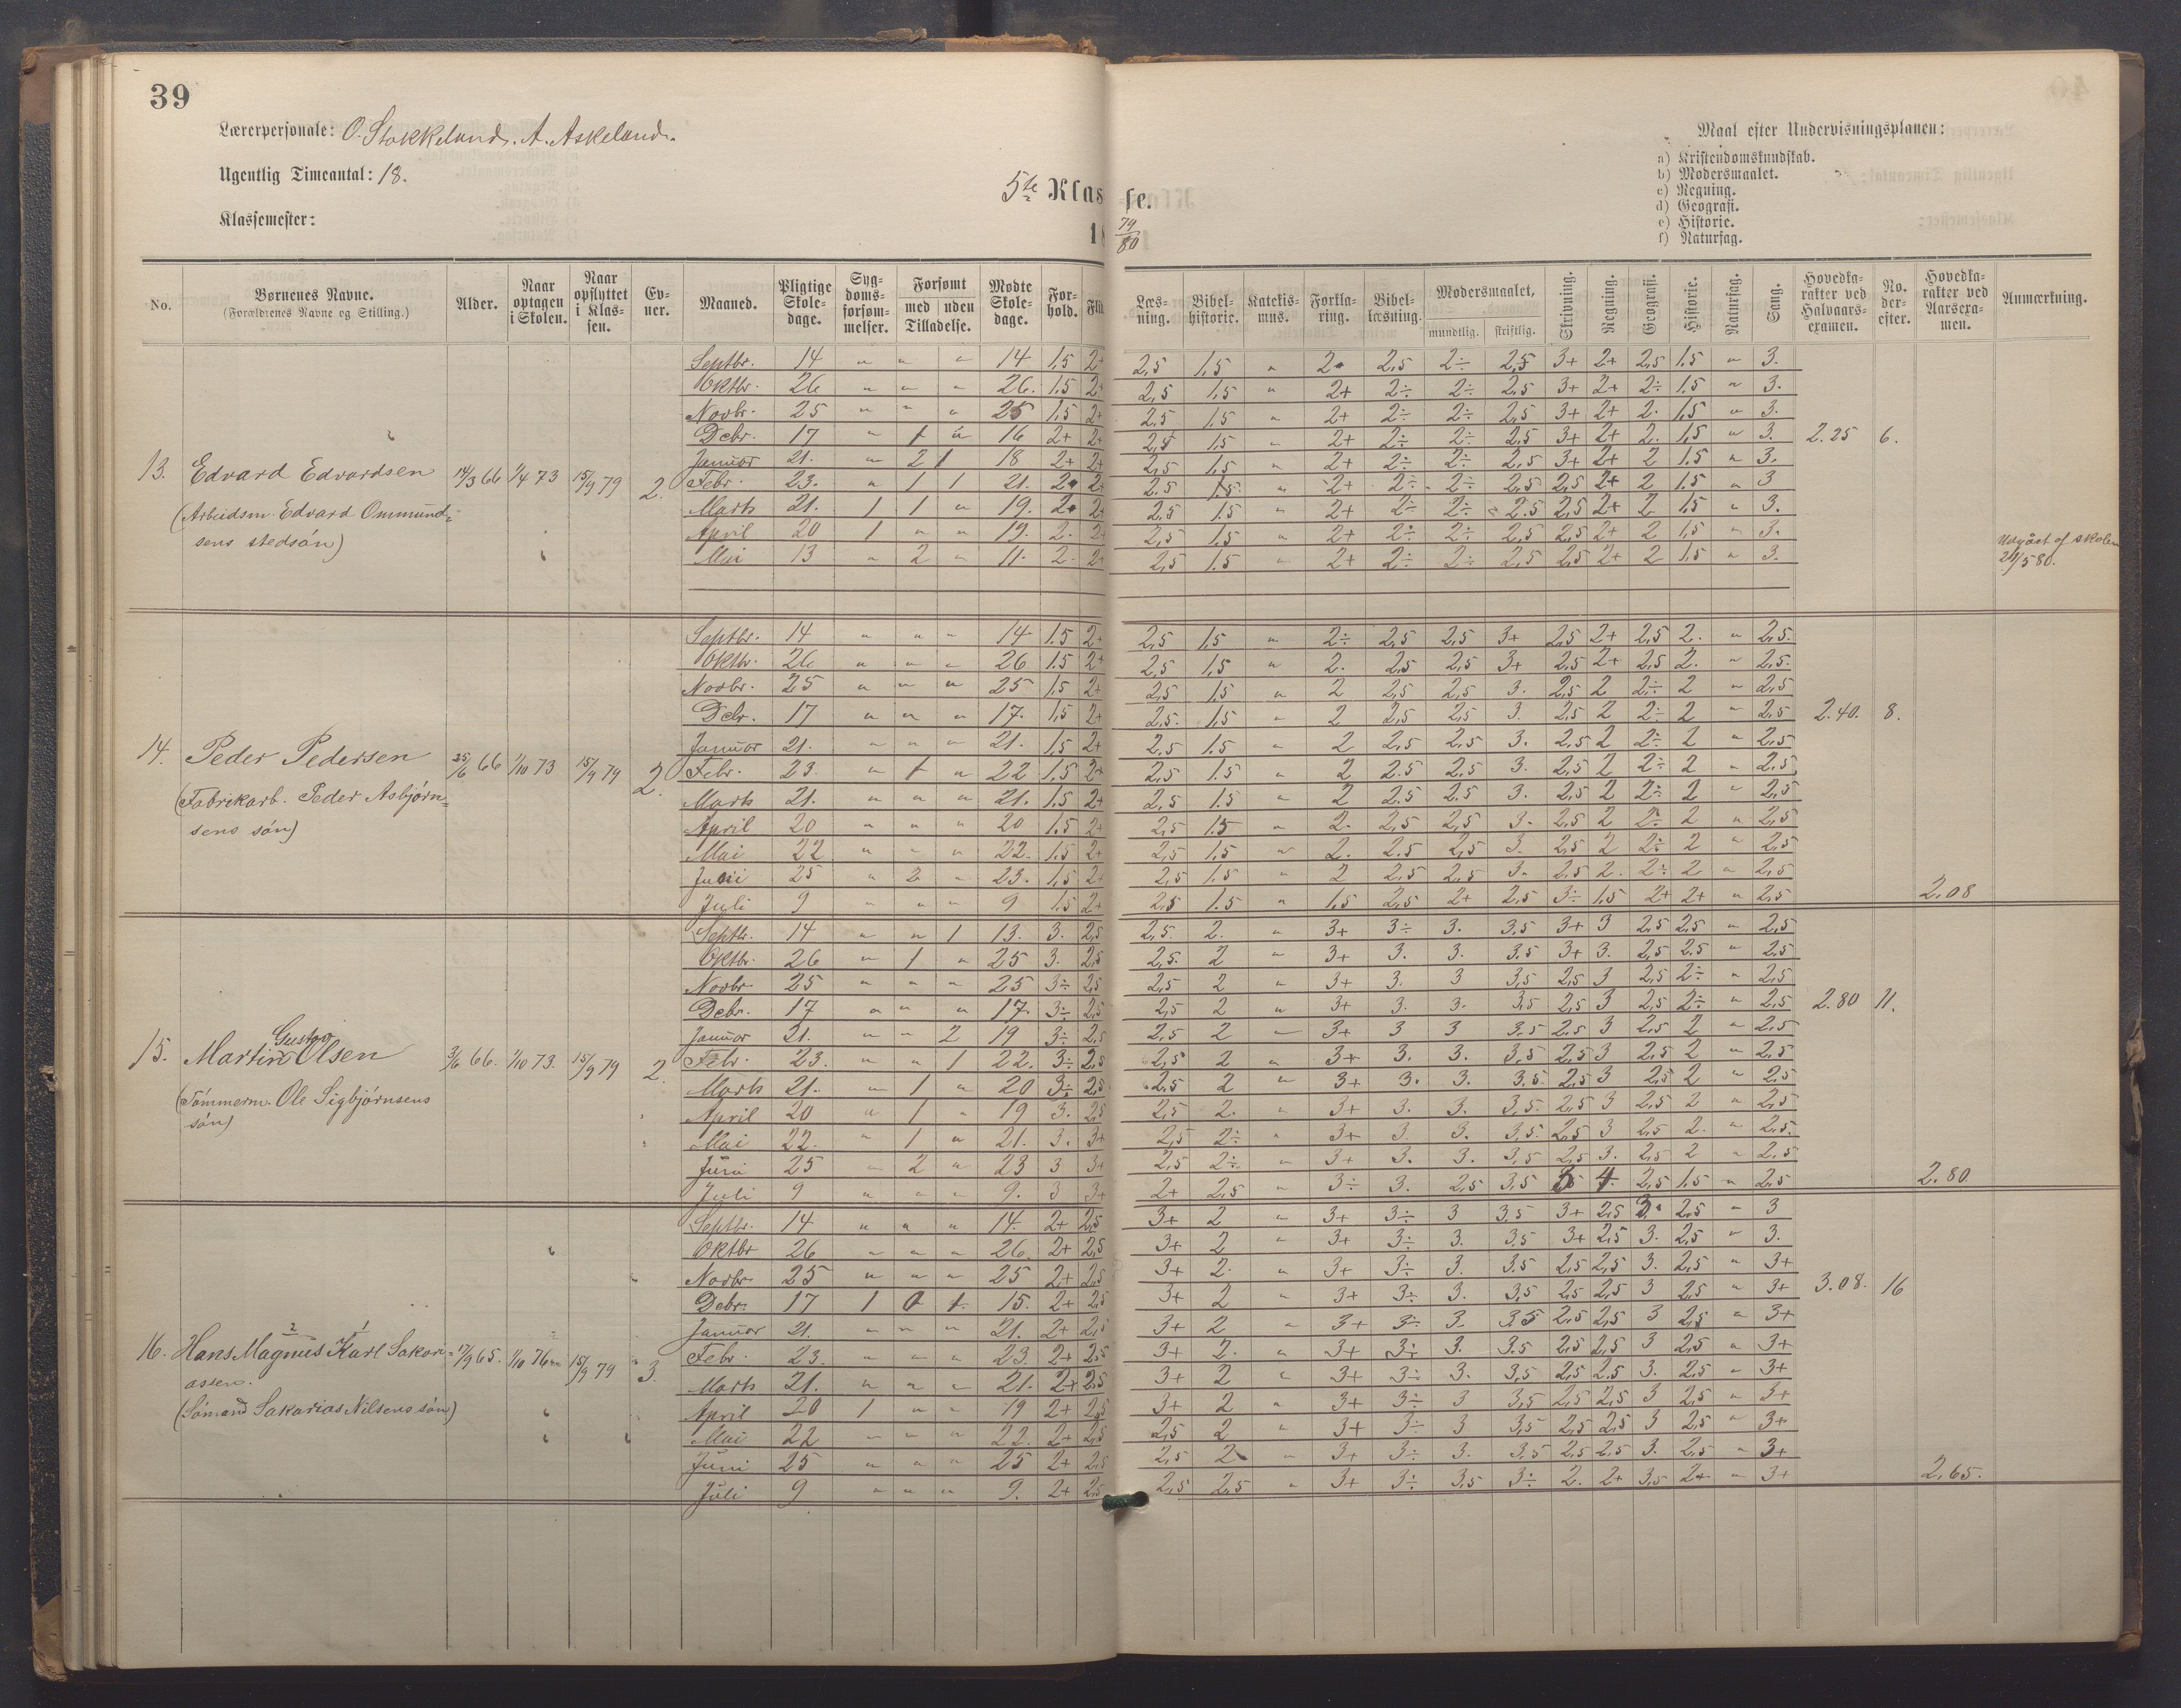 39
Lærerpersonale: O. Stokkeland. A. Askeland.
Ugentlig Timeantal: 18.
Klassemester:
5te Klasse.
18 79/80
Maal efter Undervisningsplanen:
a) Kristendomskundskab.
b) Modersmaalet.
c) Regning.
d) Geografi.
e) Historie.
f) Naturfag.
No. Børnenes Navne. (Forældrenes Navne og Stilling.) Alder. Naar optagen i Skolen. Naar opflyttet i Klassen. Evner. Maaned. Pligtige Skoledage. Sygdomsforsømmelser. Forsømt med uden Tilladelse. Mødte Skoledage. Forhold. Læsning. Bibelhistorie. Katekismus. Forklaring. Bibellæsning. Modersmaalet, mundtlig. skriftlig. Skrivning. Regning. Geografi. Historie. Naturfag. Sang. Hovedkarakter ved Halvaarsexamen. No. derefter. Hovedkarakter ved Aarsexamen. Anmærkning.
Septbr. 14 " " " 14 1,5 2+ 2,5 1,5 " 2 2,5 2÷ 2,5 3+ 2+ 2,5 1,5 " 3.
Oktbr. 26 " " " 26. 1.5 2+ 2,5 1,5 " 2+ 2÷ 2÷ 2,5 3+ 2+ 2÷ 1.5 " 3.
Novbr. 25 " " " 25 1,5 2+ 2.5 1.5 " 2+ 2÷ 2÷ 2,5 3+ 2+ 2. 1,5 " 3.
Debr. 17 " 1 " 16 2+ 2+ 2,5 1,5 " 2+ 2÷ 2÷ 2.5 3+ 2+ 2. 1,5 " 3. 2.25 6.
Januar 21. " 2 1 18 2+ 2+ 2,5 1,5 " 2+ 2÷ 2÷ 2,5 3+ 2+ 2 1.5 " 3.
13. Edvard Edvardsen 14/3 66 1/4 73 15/9 79 2.
Febr. 23. " 1 1 21. 2 2+ 2.5 1.5 " 2+ 2÷ 2÷ 2,5 2,5 2+ 2 1,5 " 3
(Arbeidsm. Edvard Ommund=
Marts 21. 1 1 " 19. 2 2+ 2.5 1.5 " 2+ 2÷ 2÷ 2.5 2,5 2+ 2 1.5 " 3.
sens stedsön)
April 20 1 " " 19. 2. 2+ 2,5 1.5 " 2+ 2÷ 2÷ 2,5 2,5 2+ 2 1,5 " 3.
Mai 13 " 2 " 11. 2. 2+ 2,5 1.5 " 2+ 2÷ 2÷ 2,5 2,5 2+ 2 1.5 " 3.
Udgået af skolen
24/5 80.
Septbr. 14 " " " 14 1.5 2+ 2,5 1,5 " 2÷ 2,5 2,5 3+ 2,5 2+ 2,5 2. " 2,5.
Oktbr. 26 " " " 26 1.5 2+ 2,5 1,5 " 2. 2,5 2,5 3+ 2,5 2+ 2,5 2. " 2,5.
Novbr. 25 " " " 25 1,5 2+ 2,5 1.5 " 2 2,5 2,5 3. 2,5 2 2÷ 2 " 2,5
Debr. 17 " " " 17. 1,5 2+ 2,5. 1,5 " 2 2,5 2,5 3. 2,5 2 2÷ 2 " 2,5 2.40. 8.
Januar 21. " " " 21. 1,5 2+ 2,5 1.5 " 2 2,5 2,5 3. 2,5 2 2÷ 2 " 2,5
14. Peder Pedersen 25/6 66 1/10 73 15/9 79 2.
Febr. 23. " 1 " 22 1,5 2+ 2,5 1.5 " 2 2.5 2,5 3. 2,5 2 2÷ 2 " 2,5
(Fabrikarb. Peder Asbjörn=
Marts 21. " " " 21. 1.5 2+ 2,5 1.5 " 2 2.5 2.5 3. 2,5 2 2÷ 2 " 2,5
sens sön)
April 20 " " " 20 1.5 2+ 2,5 1.5 " 2. 2,5 2,5 3. 2,5 2 2÷ 2 " 2,5
Mai 22 " " " 22. 1.5 2+ 2,5 1,5 " 2. 2.5 2,5 3. 2,5 2 2÷ 2 " 2,5
Juni 25 " 2 " 23. 1,5 2+ 2,5 1.5 " 2 2,5 2,5 3. 2,5 2. 2÷ 2 " 2,5
Juli 9 " " " 9 1.5 2+ 2,5 1.5 " 1,5 2,5 2+ 2,5 3÷ 1,5 2+ 2+ " 2,5 2,08
Septbr. 14 " " 1 13. 3. 2,5 2,5. 2. " 3+ 3÷ 3. 3,5 3+ 3 2,5 2,5 " 2,5
Oktbr. 26 " 1 " 25 3. 2,5 2,5. 2 " 3+ 3. 3. 3.5 3+ 3. 2,5 2.5 " 2,5
Novbr. 25 " " " 25 3÷ 2,5 2,5 2 " 3+ 3. 3 3,5 2,5 3 2,5 2÷ " 2,5
Debr. 17 " " " 17. 3÷ 2,5 2,5 2 " 3+ 3. 3. 3,5 2,5 3 2,5 2÷ " 2,5 2.80 11.
Januar 21. " " 2 19 3÷ 2,5 2,5 2 " 3+ 3 3 3.5 2,5 3 2,5 2 " 2,5
15. Martin Gustav Olsen 3/6 66. 1/10 73. 15/9 79 2.
Febr. 23. " " 1 22. 3÷ 2,5 2,5 2 " 3+ 3. 3. 3,5 2,5 3 2,5 2 " 2,5
(Tömmerm. Ole Sigbjörnsens
Marts 21. " 1 " 20 3÷ 2,5 2.5 2 " 3+ 3. 3. 3.5. 2,5 3 2,5 2 " 2,5
sön)
April 20 " 1 " 19 3. 2,5 2,5 2. " 3+ 3. 3. 3,5. 2,5 3 2,5 2 " 2,5
Mai 22. " 1 " 21. 3. 3+ 2,5 2÷ " 3+ 3. 3. 3,5. 2,5 3 2,5 2. " 2,5.
Juni 25 " 2 " 23 3 3+ 2,5 2÷ " 3+ 3. 3. 3,5 2,5 3. 2,5 2 " 2,5
Juli 9 " " " 9. 3 3+ 2+ 2,5 " 3÷ 3. 2,5 3,5 3 4. 2,5 1.5 " 2,5 2.80
Septbr. 14 " " " 14. 2+ 2,5 3+ 2 " 3+ 3÷ 3 3.5 3+ 2,5 3. 2,5 " 3
Oktbr 26 " " " 26. 2+ 2,5 3+ 2 " 3+ 3÷ 3. 3,5 3+ 2,5 3. 2,5 " 3.
Novbr. 25 " " " 25 2+ 2,5 3+ 2. " 3+ 3÷ 3. 3.5 2,5 2,5 3. 2,5 " 3+
Debr. 17 1 1. 15. 2+ 2,5 3+ 2 " 3+ 3÷ 3. 3,5 2,5 2,5 3 2,5 " 3+ 3.08. 16
Januar 21. " " " 21. 2+ 2,5 3+ 2 " 3+ 3÷ 3. 3.5 2,5 2,5 3 2,5 " 3+
16. Hans Magnus Karl Sakari= 17/9 65. 1/10 76 15/9 79 3.
Febr. 23. " " " 23. 2+ 2,5 3+ 2. " 3+ 3÷ 3. 3.5 2,5 2,5 3 2,5 " 3+
assen.
Marts 21. " " " 21. 2+ 2,5 3+ 2 " 3+ 3÷ 3. 3,5 2,5 2.5 3. 2,5 " 3+
(Sömand Sakarias Nilsens sön)
April 20 1 " " 19 2+ 2,5 3+ 2 " 3+ 3÷ 3 3,5 2,5 2,5 3 2,5 " 3+
Mai 22 " " " 22. 2+ 2,5 2,5 2 " 3+ 3÷ 3 3,5 2,5 2,5 3 2,5 " 3+
Juni 25 " " " 25 2+ 2,5 2,5 2 " 3+ 3÷ 3. 3,5 2,5 2.5 3. 2,5 " 3+
Juli 9 " " " 9. 2+ 2,5 2,5 2,5 " 3+ 3÷ 3,5 3÷ 2. 2+ 3,5 2+ " 3+ 2,65.